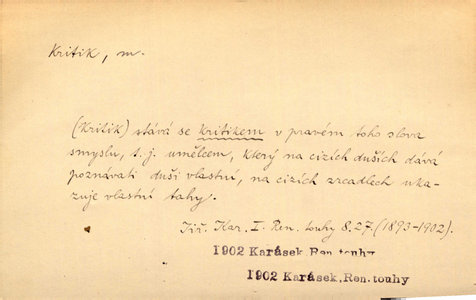 Kritik, m.
(Kritik) stává se kritikem v pravém toho slova
smyslu, t. j. umělcem, který na cizích duších dává
poznávati duši vlastní, na cizích zrcadlech uka-
zuje vlastní tahy.
Jiř. Kar. I. Ren. touhy 8.27. (1893-1902).
1902 Karásek, Ren. touhy
1902 Karásek, Ren. touhy